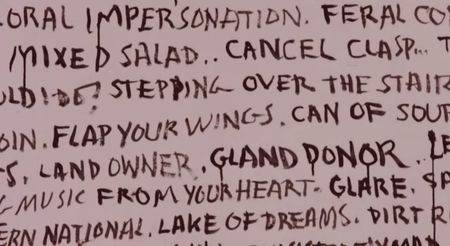 ORAL IMPERSONATION. FERAL CO
MIXED SALAD.. CANCEL CLASP... T
STEPPING OVER THE STAIR
OIN. FLAP YOUR WINGS. CAN OF SOUP
S, LAND OWNER. GLAND DONOR.. LE
G MUSIC FROM YOUR HEART. GLARE. SA
ERN NATIONAL. LAKE OF DREAMS. DIRT R